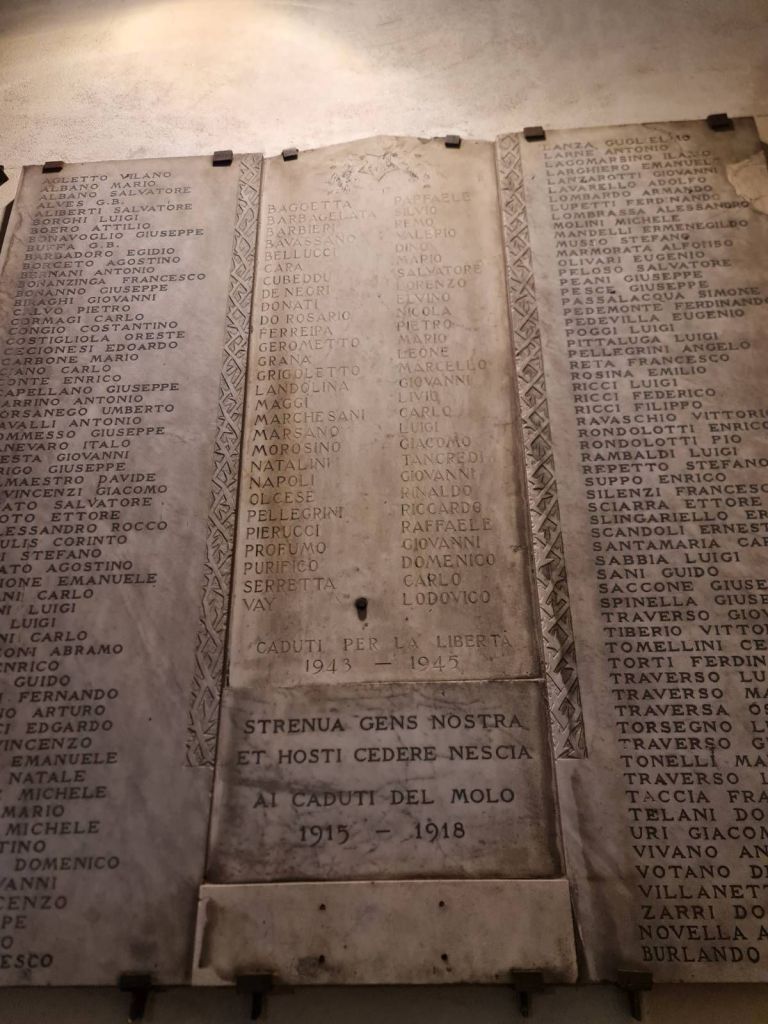 AGLETTO VILANO
ALBANO MARIO
ALBANO SALVATORE
ALVES G.B.
ALIBERTI SALVATORE
BORGHI LUIGI
BOERO ATTILIO
BONAVOGLIO GIUSEPPE
BUFFA G.B.
BARBADORO EGIDIO
BORCETO AGOSTINO
BERNANI ANTONIO
BONANZINGA FRANCESCO
BONANNO GIUSEPPE
BIRAGHI GIOVANNI
CALVO PIETRO
CORMAGI CARLO
CONGIO COSTANTINO
COSTIGLIOLA ORESTE
CECIONESI EDOARDO
CARBONE MARIO
CIANO CARLO
CONTE ENRICO
CAPELLANO GIUSEPPE
CARRINO ANTONIO
CORSANEGO UMBERTO
CAVALLI ANTONIO
COMMESSO GIUSEPPE
CANEVARO ITALO
ESTA GIOVANNI
RIGO GIUSEPPE
LMAESTRO DAVIDE
VINCENZI GIACOMO
ATO SALVATORE
OTO ETTORE
LESSANDRO ROCCO
ULIS CORINTO
I STEFANO
ATO AGOSTINO
IONE EMANUELE
NI CARLO
NI LUIGI
LUIGI
NI CARLO
ONI ABRAMO
ENRICO
GUIDO
I FERNANDO
NO ARTURO
CI EDGARDO
VINCENZO
EMANUELE
NATALE
E MICHELE
MARIO
MICHELE
TINO
DOMENICO
VANNI
CENZO
PE
O
ESCO
BAGOETTA RAFFAELE
BARBAGELATA SILVIO
BARBIERI REMO
BAVASSANO VALERIO
BELLUCCI DINO
CARA MARIO
CUBEDDU SALVATORE
DE NEGRI LORENZO
DONATI ELVINO
DO ROSARIO NICOLA
FERREIRA PIETRO
GEROMETTO MARIO
GRANA LEONE
GRIGOLETTO MARCELLO
LANDOLINA GIOVANNI
MAGGI LIVIO
MARCHESANI CARLO
MARSANO LUIGI
MOROSINO GIACOMO
NATALINI TANCREDI
NAPOLI GIOVANNI
OLCESE RINALDO
PELLEGRINI RICCARDO
PIERUCCI RAFFAELE
PROFUMO GIOVANNI
PURIFICO DOMENICO
SERRETTA CARLO
VAY LODOVICO
CADUTI PER LA LIBERTÀ
1943 — 1945
STRENUA GENS NOSTRA
ET HOSTI CEDERE NESCIA
AI CADUTI DEL MOLO
1915 – 1918
LANZA GUGLIELMO
LARNE ANTONIO
LAGOMARSINO ILARIO
LARGHIERO EMANUELE
LANZAROTTI GIOVANNI
LAVARELLO ADOLFO
LOMBARDO ARMANDO
LUPETTI FERDINANDO
LOMBRASSA ALESSANDRO
MOLINI MICHELE
MANDELLI ERMENEGILDO
MUSSO STEFANO
MARMORATA ALFONSO
OLIVARI EUGENIO
PELOSO SALVATORE
PEANI GIUSEPPE
PESCE GIUSEPPE
PASSALACQUA SIMONE
PEDEMONTE FERDINANDO
PEDEVILLA EUGENIO
POGGI LUIGI
PITTALUGA LUIGI
PELLEGRINI ANGELO
RETA FRANCESCO
ROSINA EMILIO
RICCI LUIGI
RICCI FEDERICO
RICCI FILIPPO
RAVASCHIO VITTORIO
RONDOLOTTI ENRICO
RONDOLOTTI PIO
RAMBALDI LUIGI
REPETTO STEFANO
SUPPO ENRICO
SILENZI FRANCESC
SCIARRA ETTORE
SLINGARIELLO ER
SCANDOLI ERNEST
SANTAMARIA CAR
SABBIA LUIGI
SANI GUIDO
SACCONE GIUSE
SPINELLA GIUSE
TRAVERSO GIOV
TIBERIO VITTO
TOMELLINI CE
TORTI FERDIN
TRAVERSO LU
TRAVERSO MA
TRAVERSA OS
TORSEGNO LU
TRAVERSO GI
TONELLI MA
TRAVERSO L
TACCIA FRA
TELANI DO
URI GIACOM
VIVANO AN
VOTANO D
VILLANETT
ZARRI DO
NOVELLA A
BURLANDO